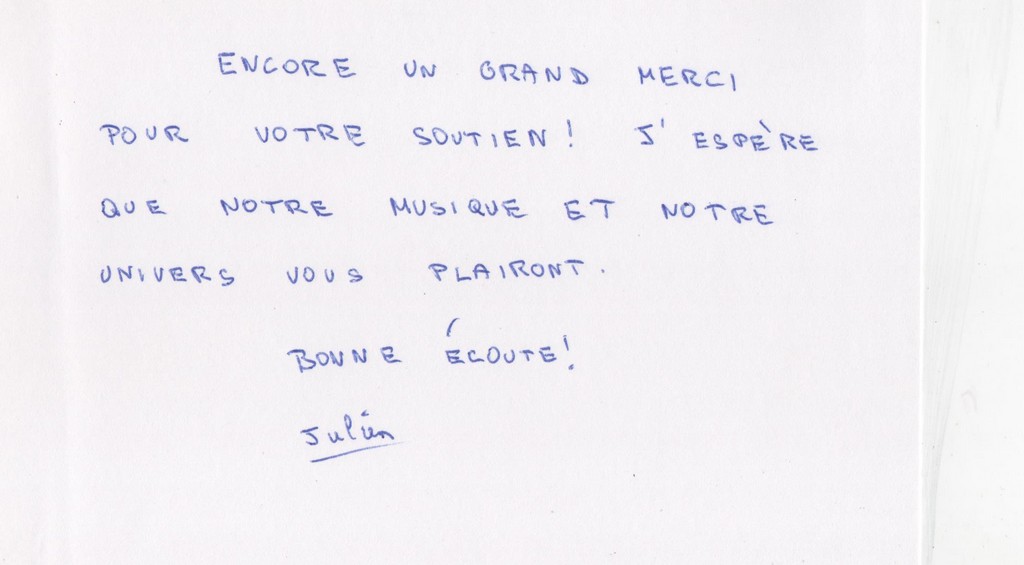 ENCORE UN GRAND MERCI
POUR VOTRE SOUTIEN ! J'ESPÈRE
QUE NOTRE MUSIQUE ET NOTRE
UNIVERS VOUS PLAIRONT.
BONNE ÉCOUTE !
Julien